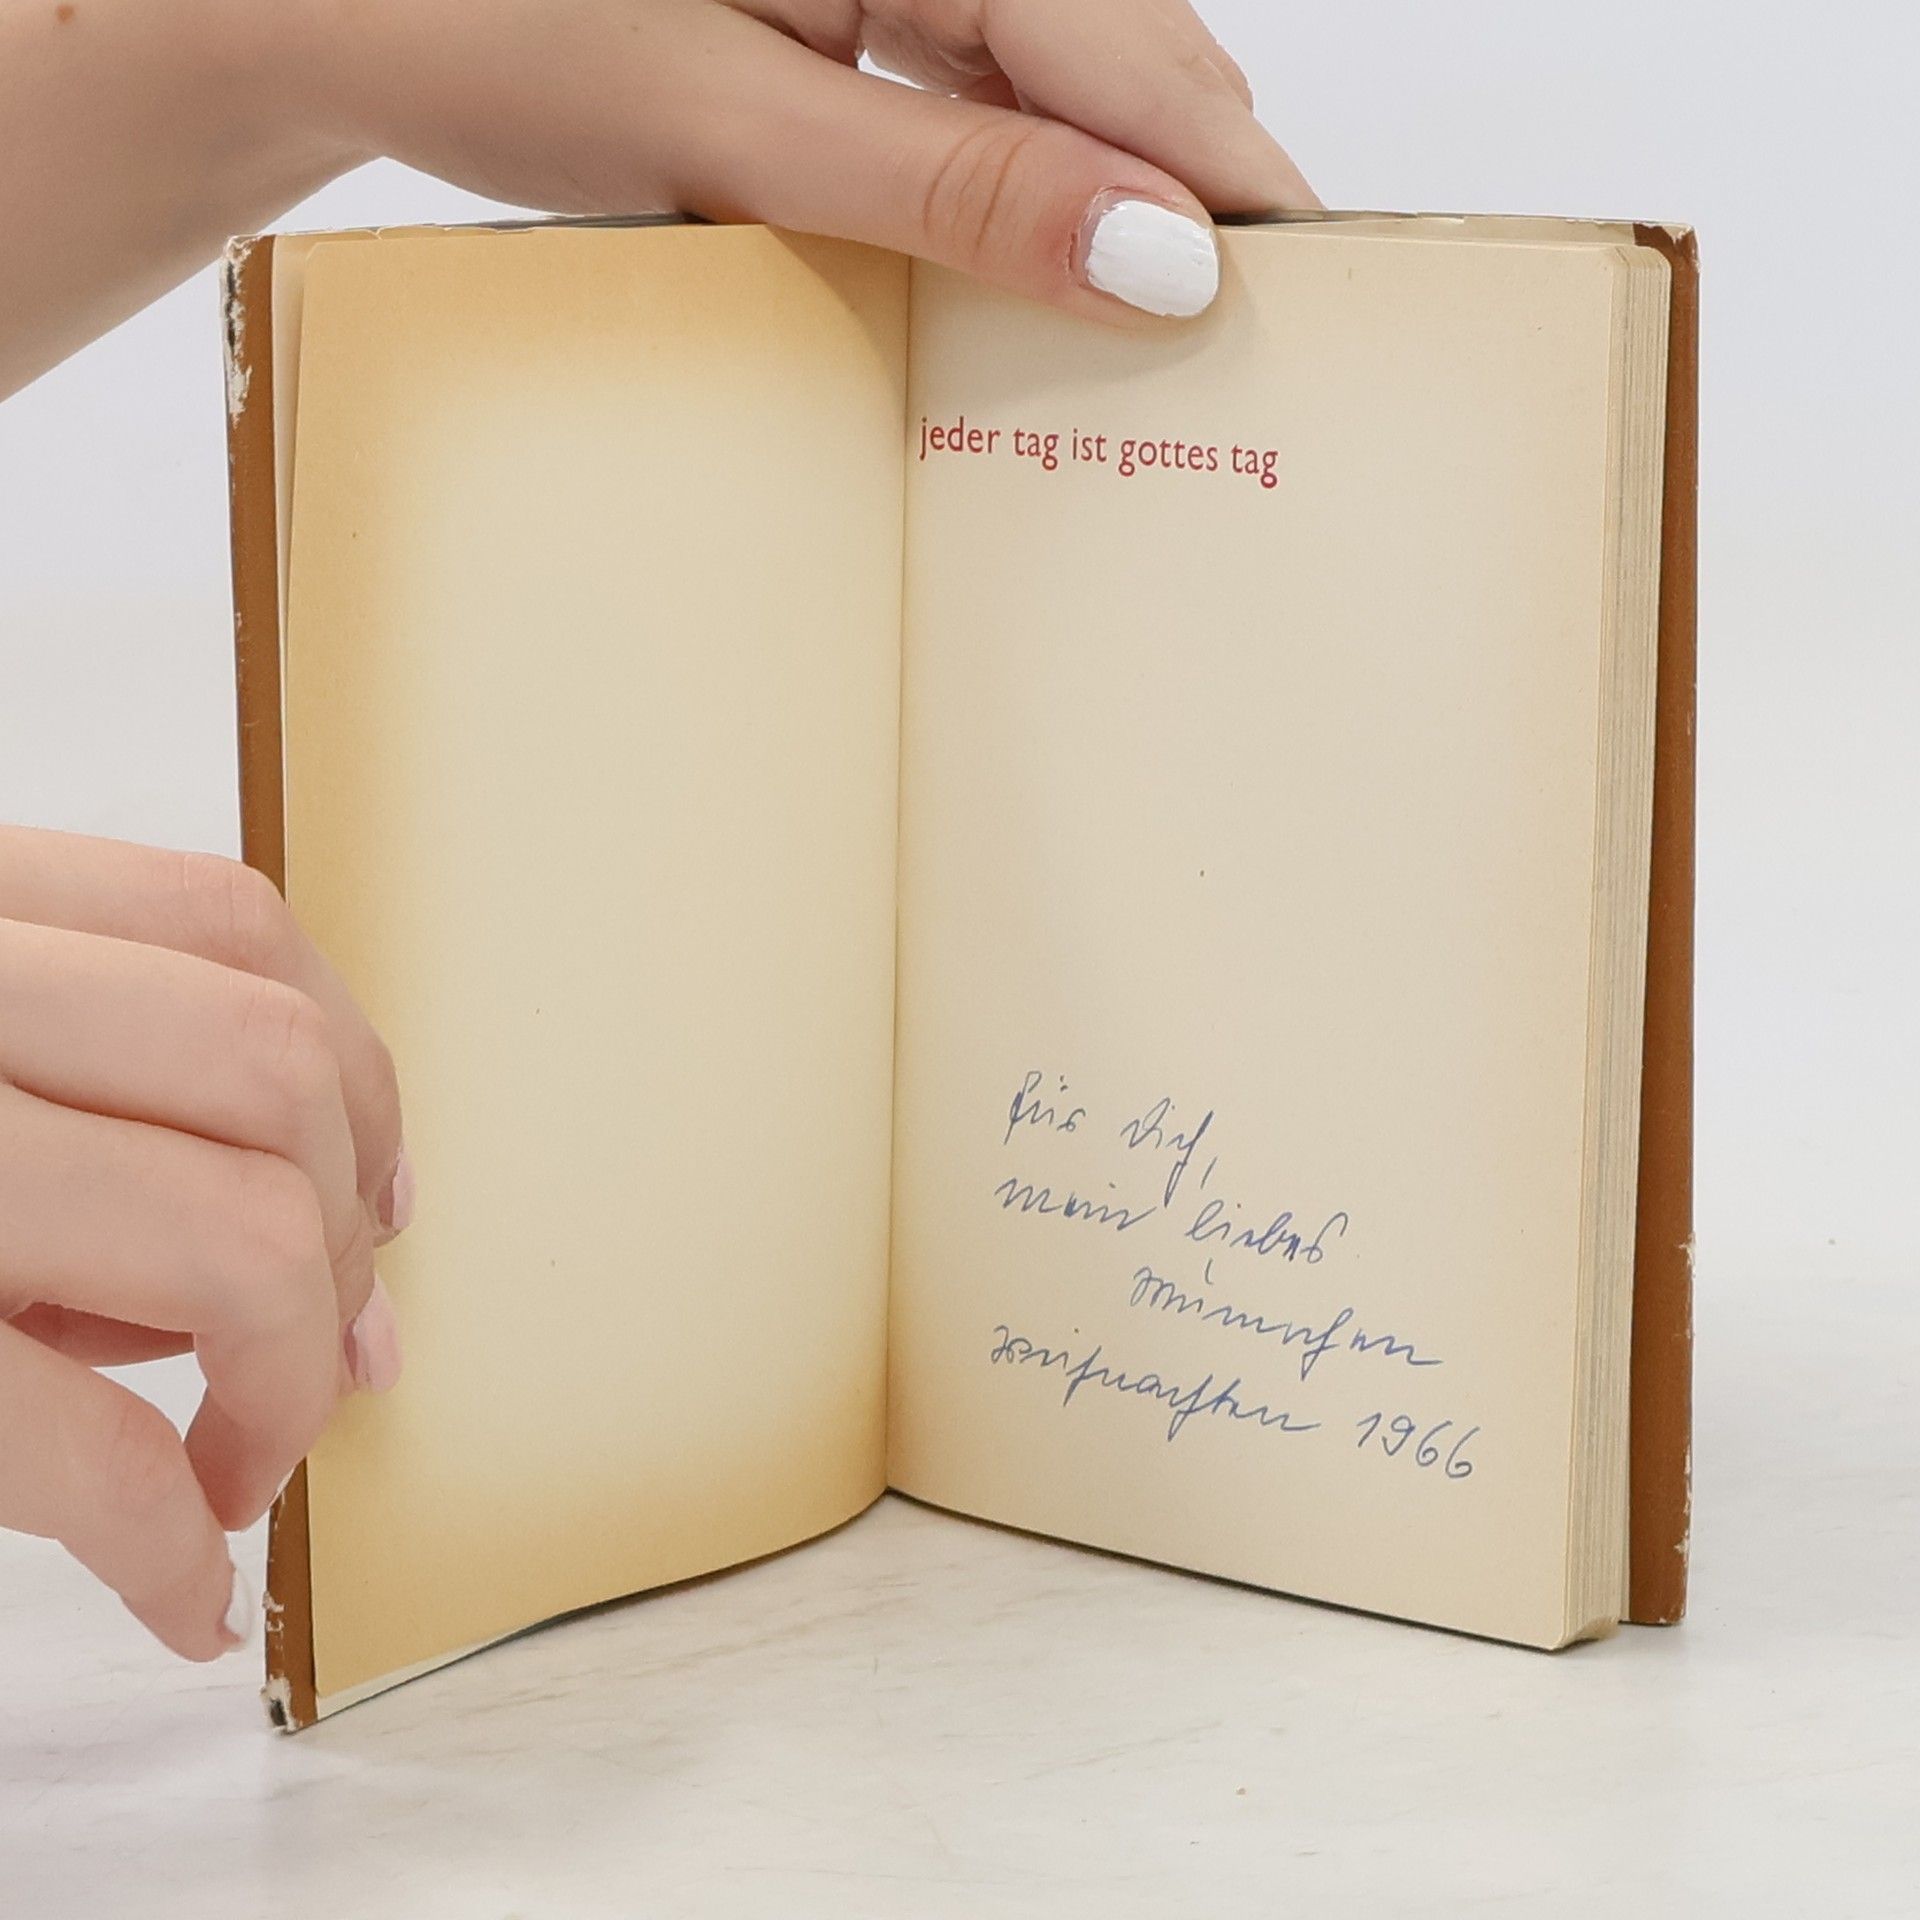 jeder tag ist gottes tag
für Dich,
mein liebes
Weihnachten 1966